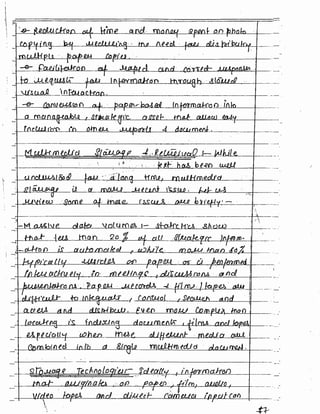 - Reduction of time and money spent on photo
copying by reducing the need for distributing
multiple paper copies.
- Facilitation of rapid and correct response
to request for information through stored
visual interaction.
- Conversion of paper-based information into
a manageable, strategic asset that allow easy
inclusion in other reports & document.
Multimedia Storage & Retrieval :- While
text has been well
understood for a long time, multimedia
storage is a more recent issue. Let us
review some of these issues are briefly :-
- Massive data volumes :- statistics show
that less than 20 % of all strategic inform-
ation is automated, while more than 80%
typically resides on paper or is performed
interactively in meetings, discussions and
presentations. Paper records & films / tapes are
difficult to integrate, control, search and
access and distribute. Even more complex than
locating is indexing documents, films and tapes
especially when these different media are
combined into a single multimedia document.
Storage Technologies Ideally, information
that originates on paper, film, audio,
video tapes and direct camera input can